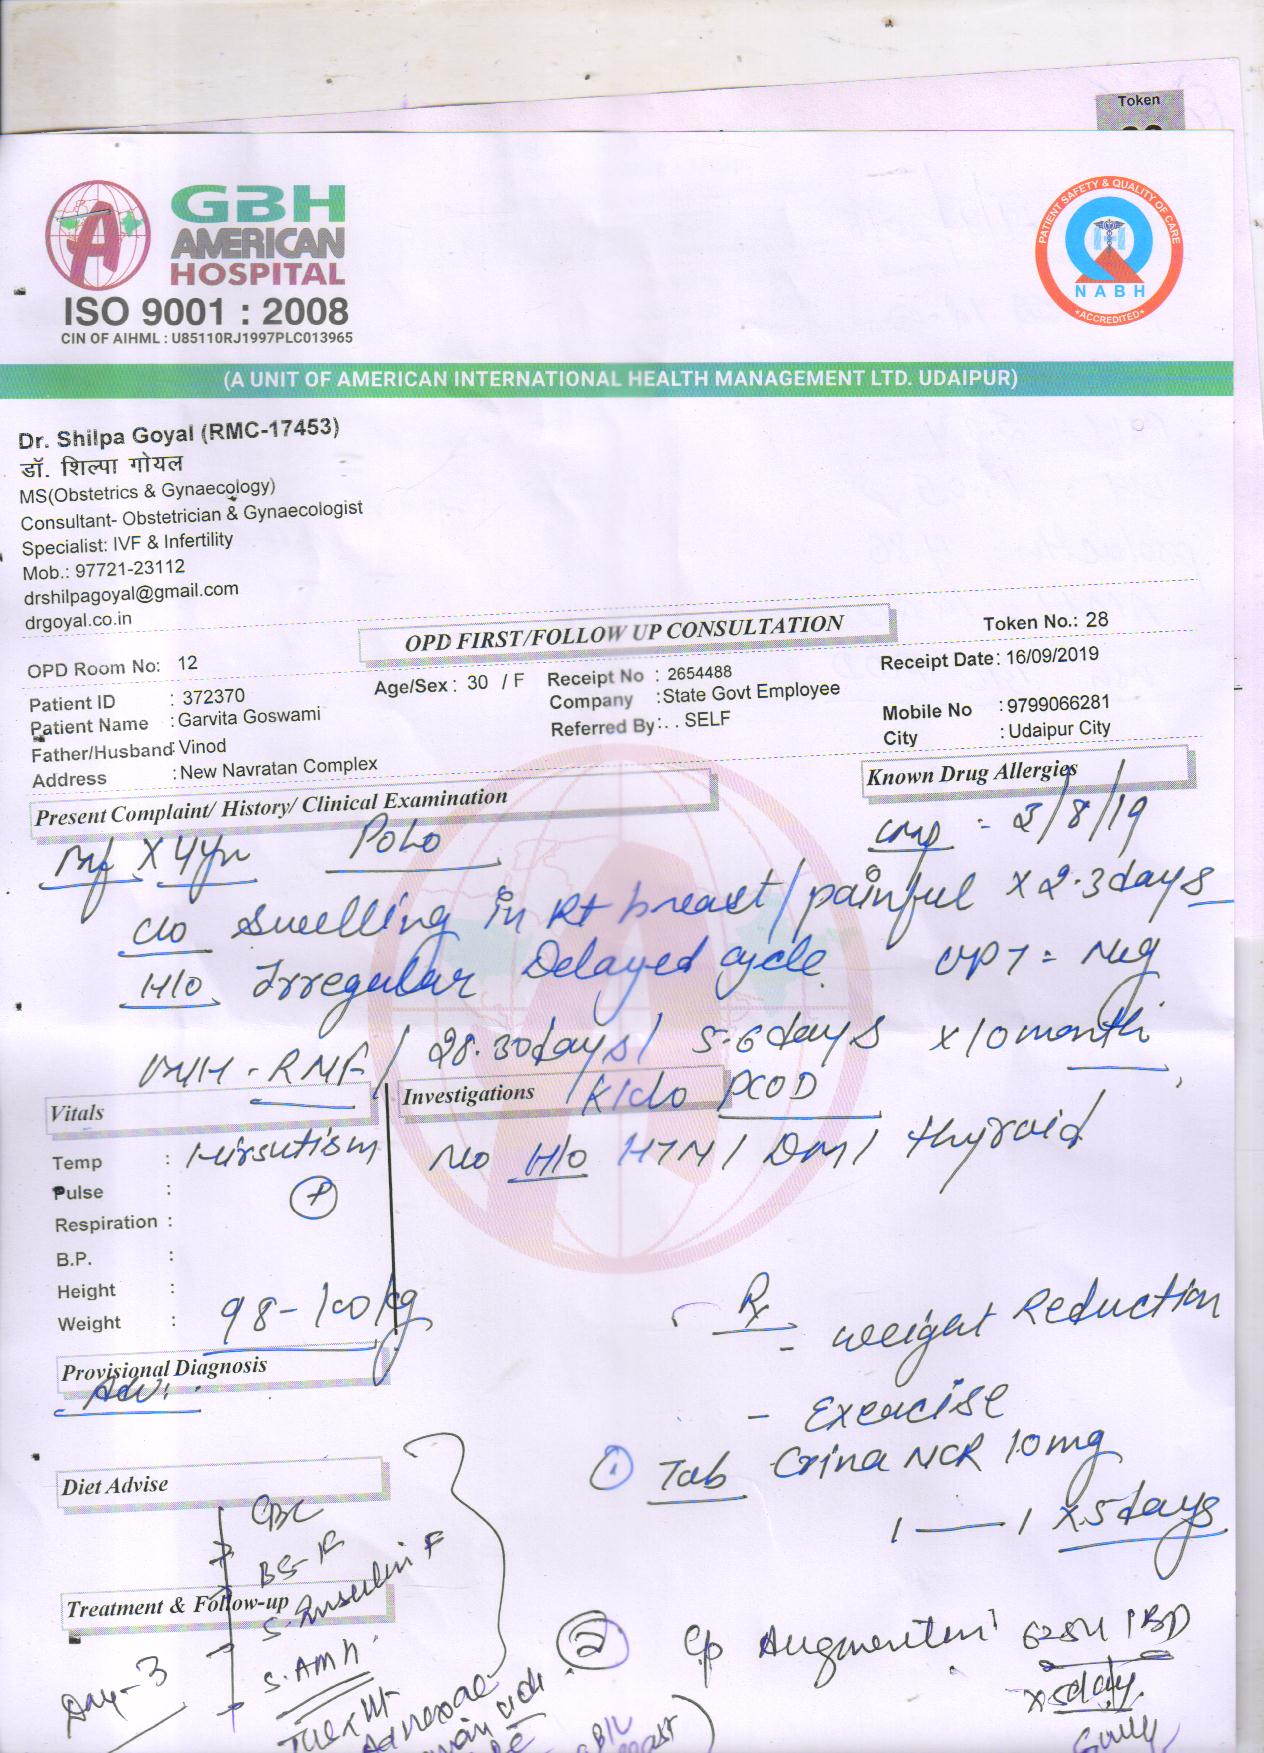 Token
GBH
AMERICAN
HOSPITAL
ISO 9001 : 2008
CIN OF AIHML : U85110RJ1997PLC013965
PATIENT SAFETY & QUALITY OF CARE
NABH
ACCREDITED
(A UNIT OF AMERICAN INTERNATIONAL HEALTH MANAGEMENT LTD. UDAIPUR)
Dr. Shilpa Goyal (RMC-17453)
डॉ. शिल्पा गोयल
MS(Obstetrics & Gynaecology)
Consultant- Obstetrician & Gynaecologist
Specialist: IVF & Infertility
Mob.: 97721-23112
drshilpagoyal@gmail.com
drgoyal.co.in
OPD FIRST/FOLLOW UP CONSULTATION
Token No.: 28
OPD Room No: 12
Age/Sex : 30 / F
Receipt No : 2654488
Receipt Date: 16/09/2019
Patient ID : 372370
Company : State Govt Employee
Patient Name : Garvita Goswami
Referred By: . . SELF
Mobile No : 9799066281
Father/Husband: Vinod
City : Udaipur City
Address : New Navratan Complex
Known Drug Allergies
Present Complaint/ History/ Clinical Examination
LMP = 3/8/19
X 4yr P0L0
c/o Swelling in Rt breast/painful X 2-3days
H/O Irregular Delayed cycle UPT = Neg
M/H - RMF / 28-30days/ 5-6days X 10 month
Vitals
Investigations
K/c/o PCOD
Temp :
Hirsutism
No H/O HTN / DM / thyroid
Pulse :
+
Respiration :
B.P. :
Height :
Weight : 98-100kg
Rx
- weight Reduction
Provisional Diagnosis
Adv:
- Exercise
① Tab Crina NCR 10mg
1 — 1 x 5days
Diet Advise
CBC
BS-F
S. Insulin F
Treatment & Follow-up
S. AMH
Day-3
② Cap Augmentin 625 1BD
x 5day
Adnexae